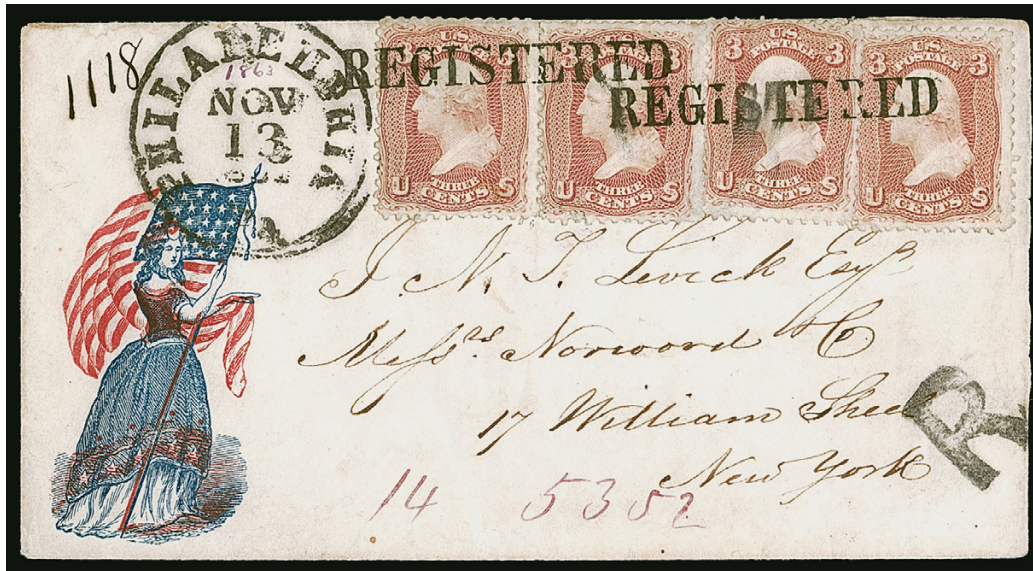 1118
PHILADELPHIA
1863
NOV
13
PA
REGISTERED
REGISTERED
3 U.S. POSTAGE 3
U THREE CENTS S
3 U.S. POSTAGE 3
U THREE CENTS S
3 U.S. POSTAGE 3
U THREE CENTS S
3 U.S. POSTAGE 3
U THREE CENTS S
J. N. T. Levick Esqr
Messrs. Norword & C
17 William Street
New York
R
14 5352